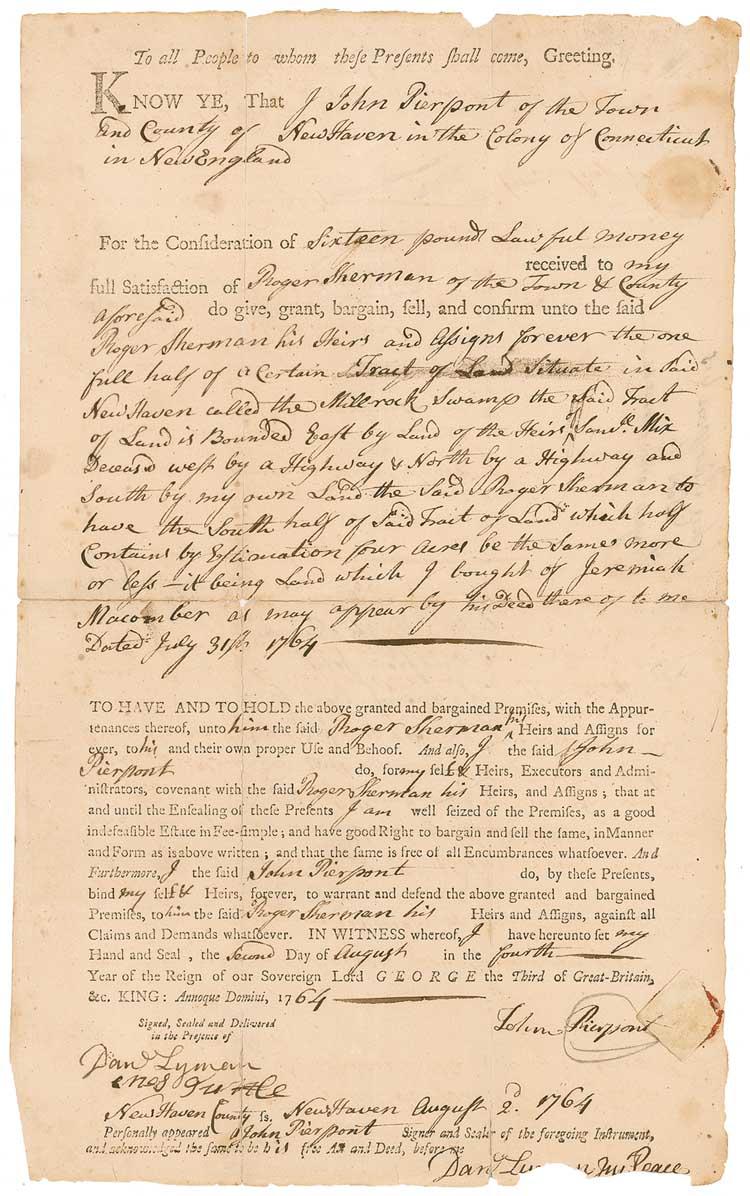 To all People to whom these Presents shall come, Greeting.
KNOW YE, That I John Pierpont of the Town
and County of New Haven in the Colony of Connecticut
in New England
For the Consideration of Sixteen pounds Lawful money
received to my
full Satisfaction of Roger Sherman of the Town & County
aforesaid do give, grant, bargain, sell, and confirm unto the said
Roger Sherman his Heirs and Assigns forever the one
full half of a Certain Tract of Land Situate in said
New Haven called the Millrock Swamp the said Tract
of Land is Bounded East by Land of the Heirs of Saml. Mix
Deceasd west by a Highway & North by a Highway and
South by my own Land the Said Roger Sherman to
have the South half of said Tract of Land which half
Contains by Estimation four Acres be the same more
or less - it being Land which I bought of Jeremiah
Macomber as may appear by his Deed there of to me
Dated July 31st. 1764
TO HAVE AND TO HOLD the above granted and bargained Premises, with the Appur-
tenances thereof, unto him the said Roger Sherman his Heirs and Assigns for
ever, to his and their own proper Use and Behoof. And also, I the said John
Pierpont do, for my self & Heirs, Executors and Admi-
nistrators, covenant with the said Roger Sherman his Heirs, and Assigns; that at
and until the Ensealing of these Presents I am well seized of the Premises, as a good
indefeasible Estate in Fee-simple; and have good Right to bargain and sell the same, in Manner
and Form as is above written; and that the same is free of all Encumbrances whatsoever. And
Furthermore, I the said John Pierpont do, by these Presents,
bind my self & Heirs, forever, to warrant and defend the above granted and bargained
Premises, to him the said Roger Sherman his Heirs and Assigns, against all
Claims and Demands whatsoever. IN WITNESS whereof, I have hereunto set my
Hand and Seal, the Second Day of August in the fourth
Year of the Reign of our Sovereign Lord GEORGE the Third of Great-Britain,
&c. KING: Annoque Domini, 1764
Signed, Sealed and Delivered
in the Presence of
John Pierpont
Danl Lyman
Enos Tuttle
New Haven County ss. New Haven August 2d. 1764
Personally appeared John Pierpont Signer and Sealer of the foregoing Instrument,
and acknowledged the same to be his free Act and Deed, before me
Danl Lyman Jus Peace